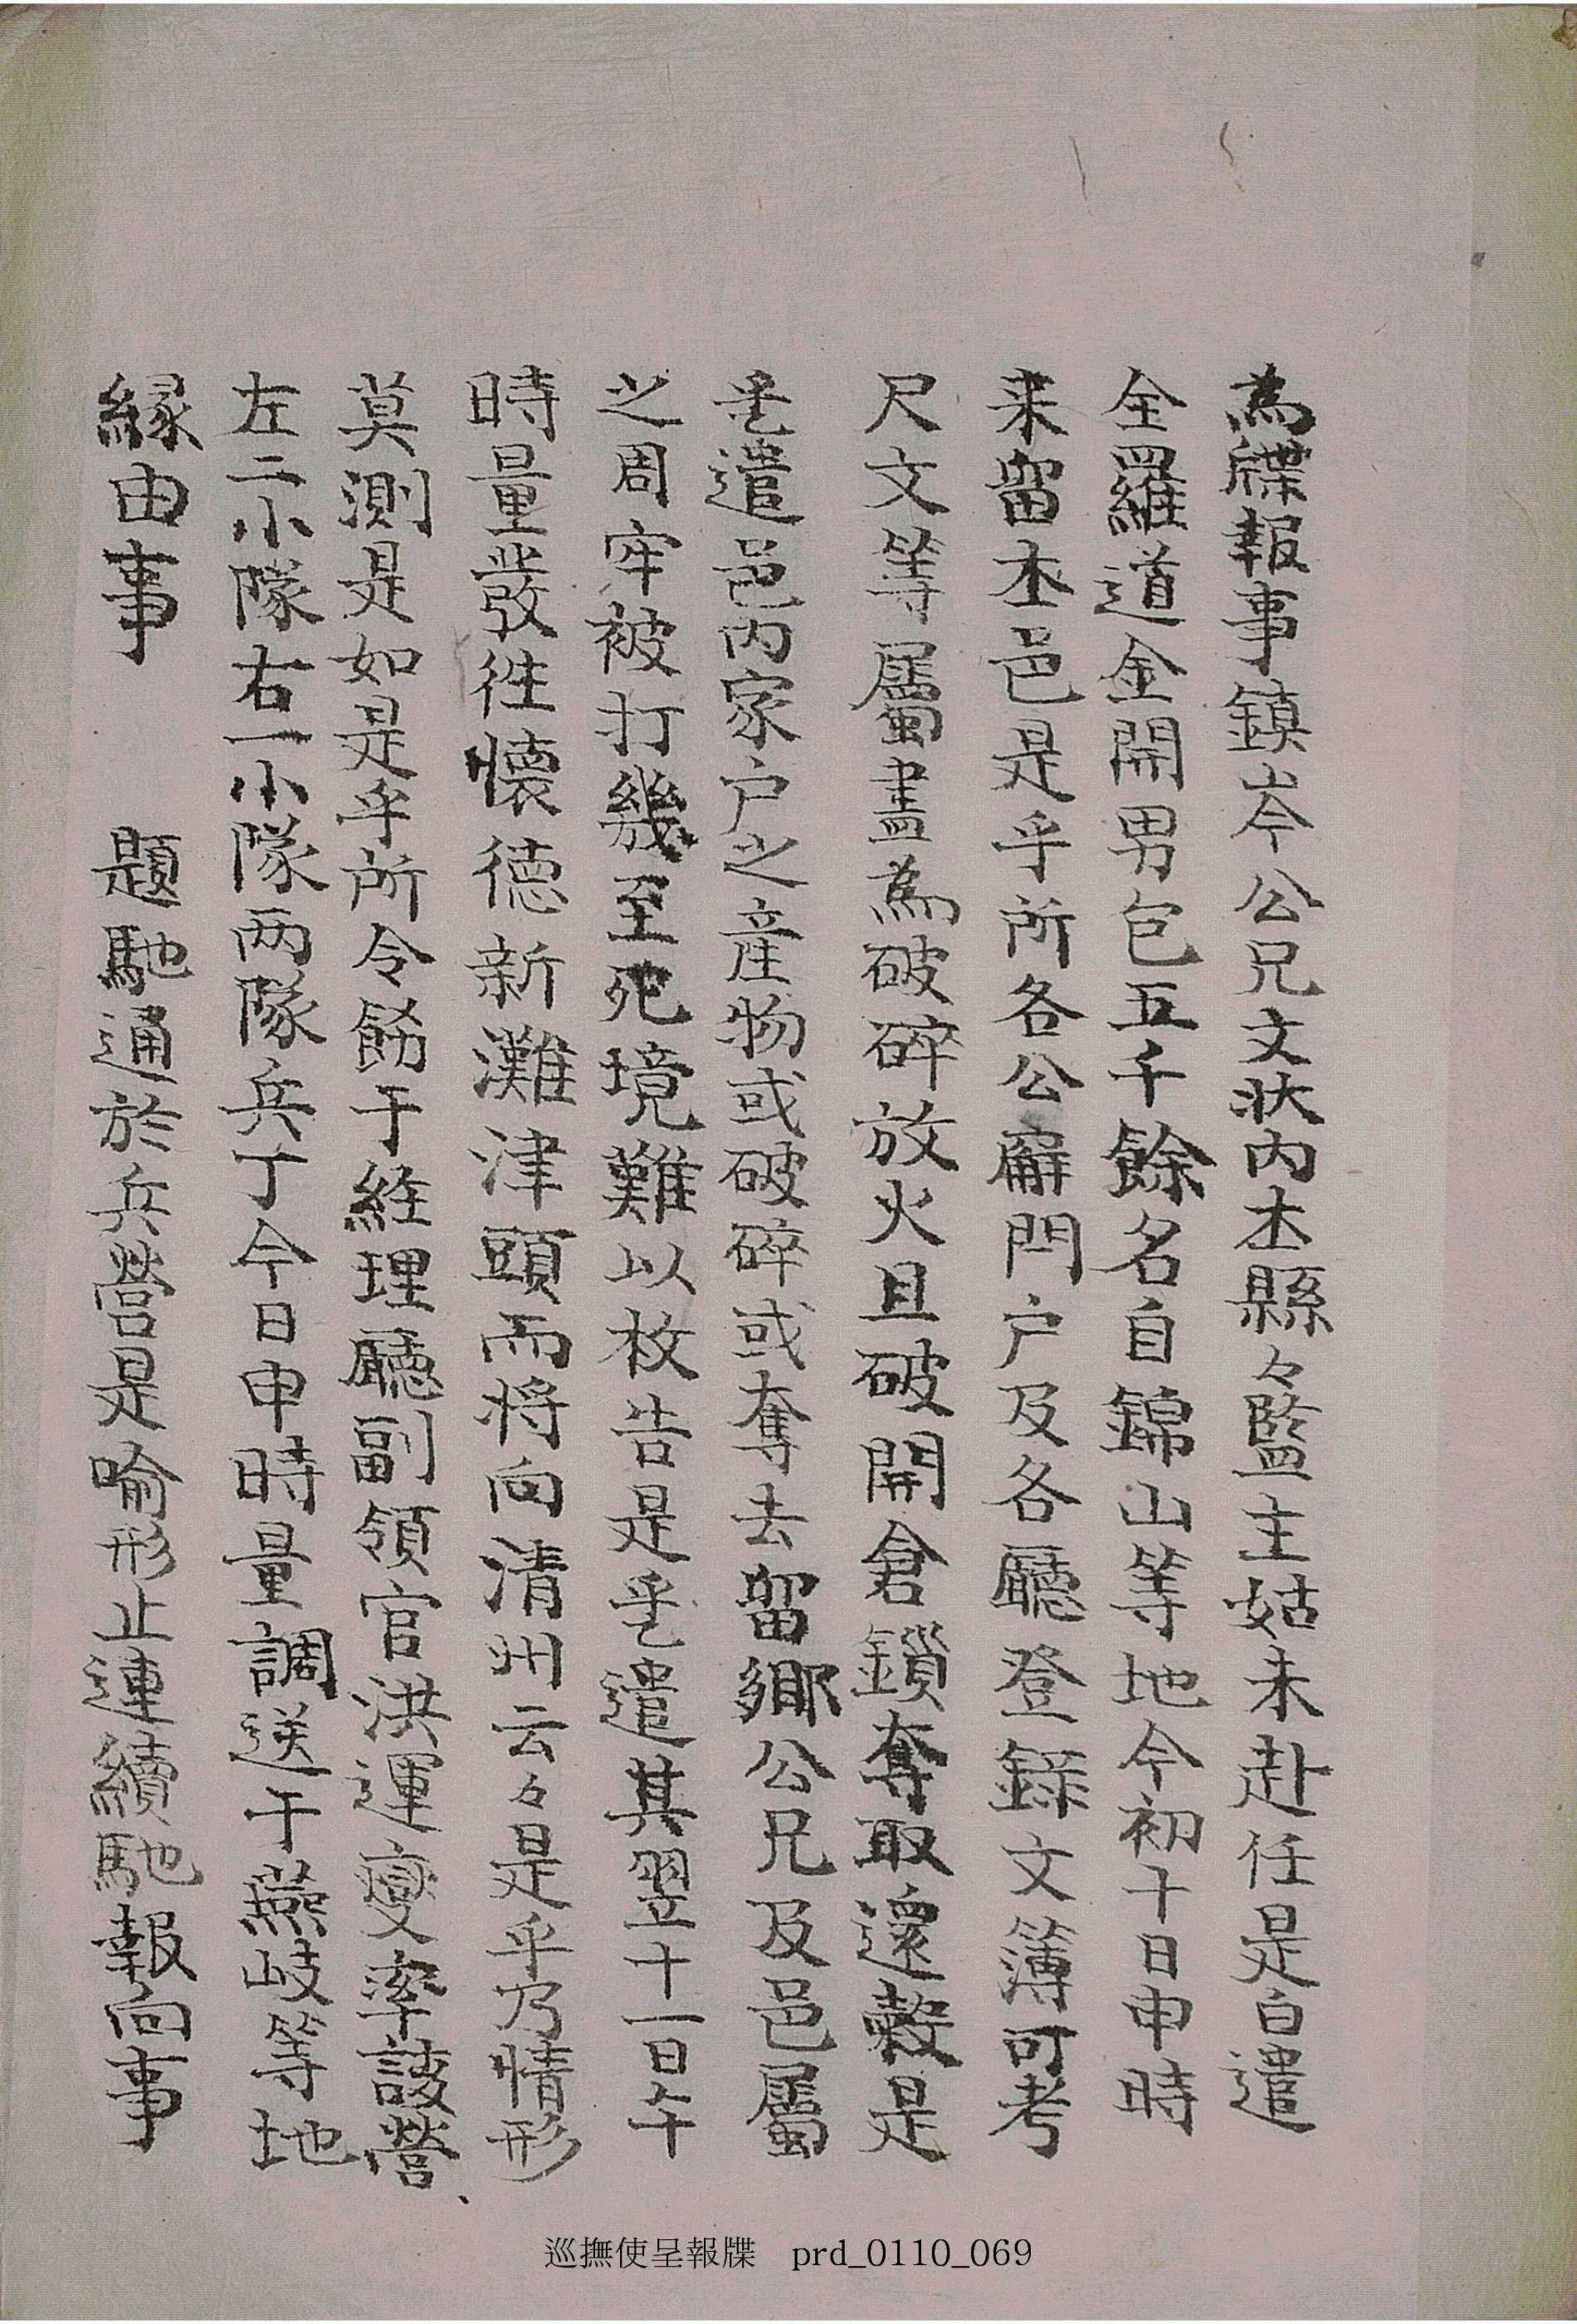 為牒報事鎮岑公兄文狀內本縣々監主姑未赴任是白遣
全羅道金開男包五千餘名自錦山等地今初十日申時
来留本邑是乎所各公廨門户及各廳登錄文簿可考
尺文等屬盡為破碎放火且破開倉鎖奪取還穀是
乎遣邑內家户之産物或破碎或奪去留鄉公兄及邑屬
之周牢被打幾至死境難以枚告是乎遣其翌十一日午
時量發徃懷德新灘津頭而将向清州云々是乎乃情形
莫測是如是乎所令飭于経理廳副領官洪運燮率該營
左二小隊右一小隊两隊兵丁今日申時量調送于燕岐等地
縁由事 題馳通於兵營是喻形止連續馳報向事
巡撫使呈報牒 prd_0110_069